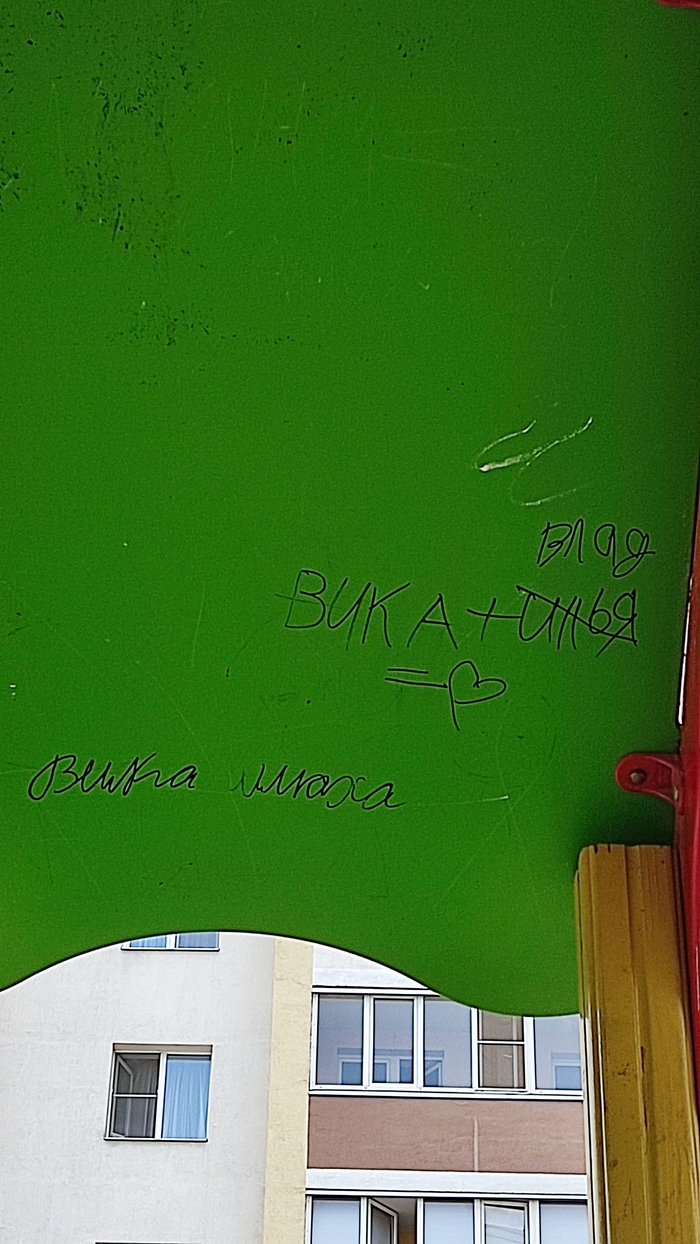 Влад
ВИКА + ИЛЬЯ
= ♡
Вика шлюха